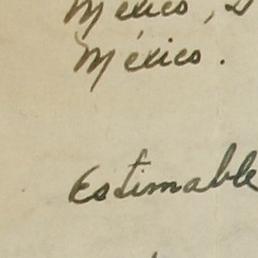 México,
México.
Estimable